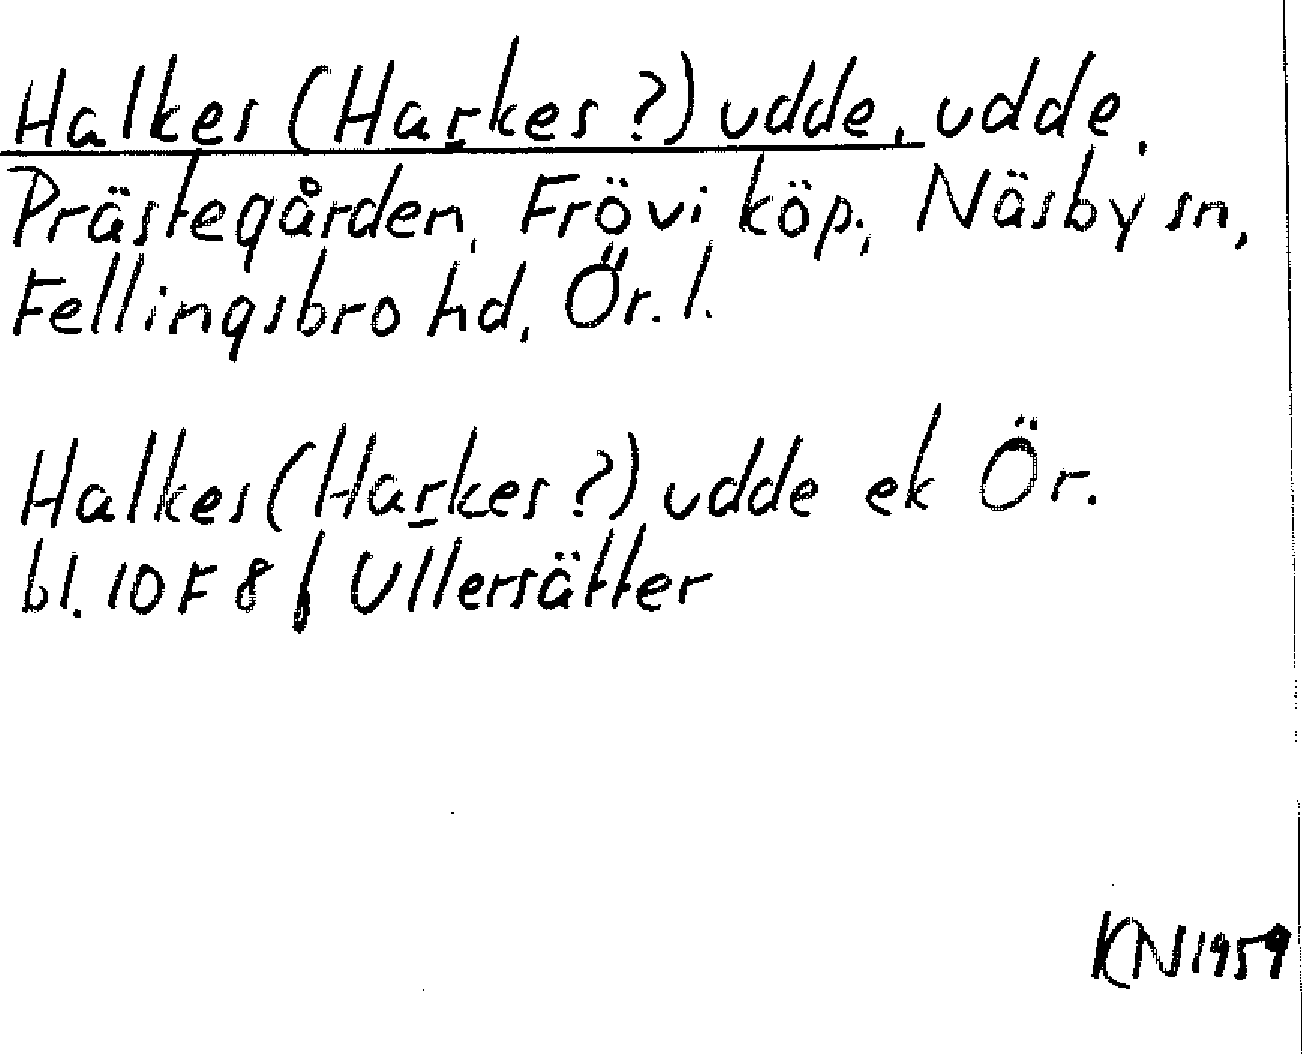 Halkes (Harkes?) udde, udde,
Prästegården, Frövi köp., Näsby sn,
Fellingsbro hd, Ör. l.
Halkes (Harkes?) udde ek Ör.
bl. 10 F 8 f Ullersätter
KN 1959